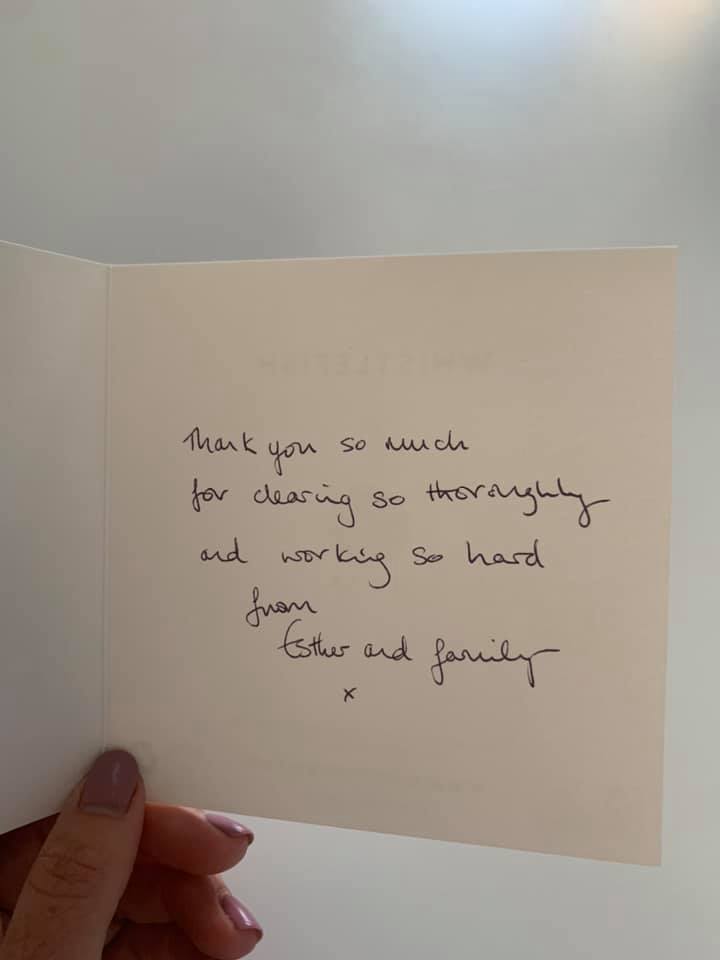 WHISTLEFISH
Thank you so much
for cleaning so thoroughly
and working so hard
from
Esther and family
x